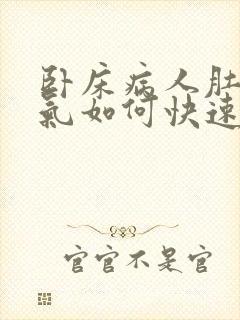 卧床病人肚
气如何快速
官官不是官